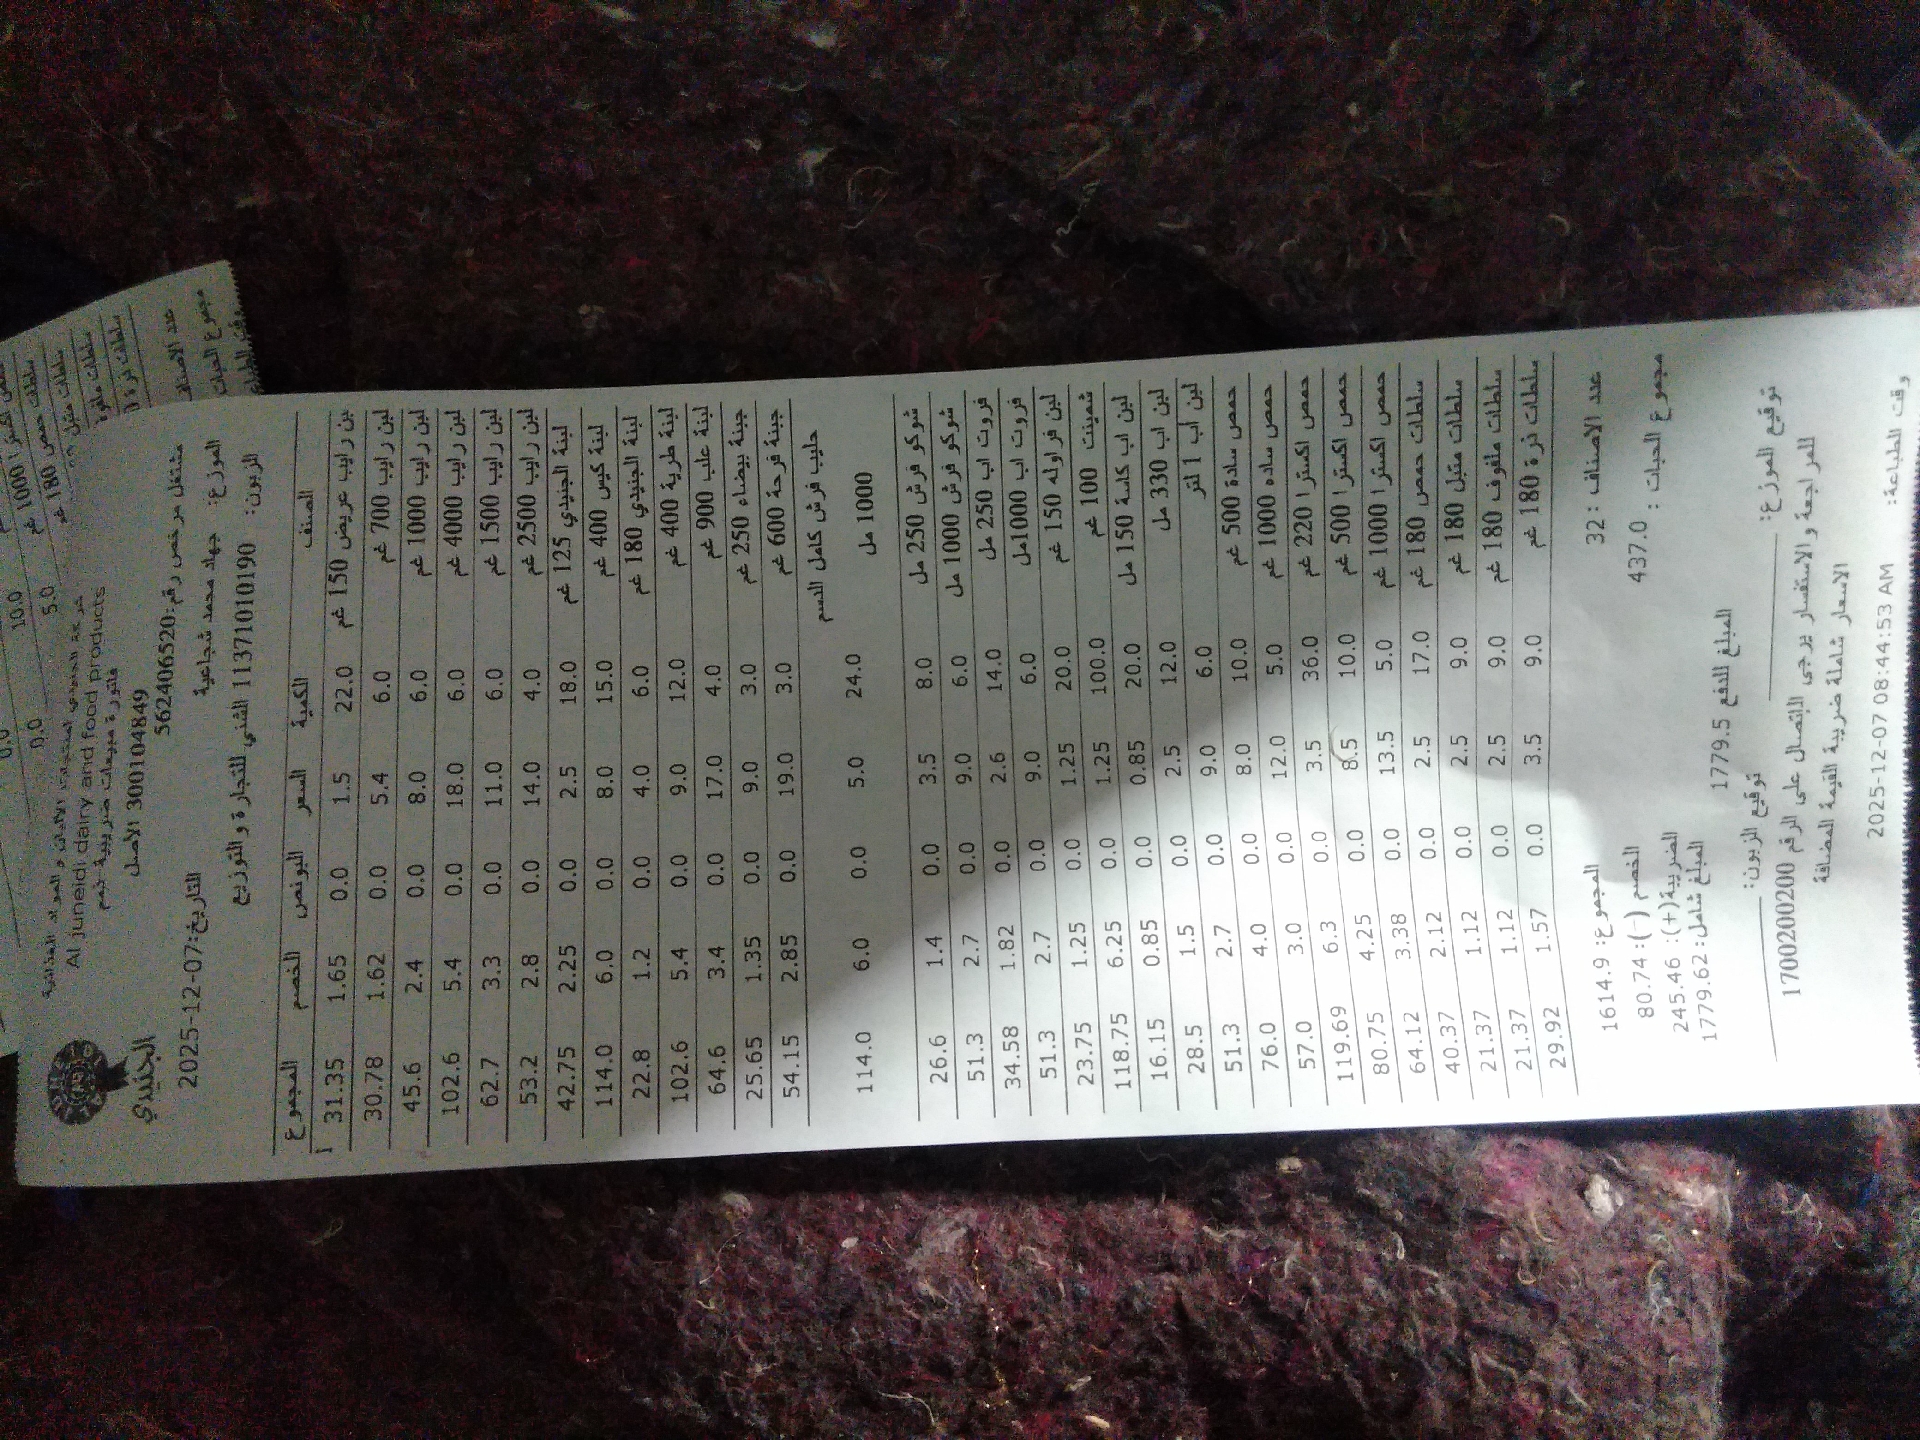 الجنيدي
شركة الجنيدي لمنتجات الالبان والمواد الغذائية
Al juneidi dairy and food products
فاتورة مبيعات ضريبية خصم
3001104849 الاصل
مشتغل مرخص رقم:562406520
التاريخ:2025-12-07
الموزع: جهاد محمد شجاعية
الزبون: 1137101090 الشني للتجارة والتوزيع
الصنف الكمية السعر البونص الخصم المجموع
لبن رايب عريض 150 غم 22.0 1.5 0.0 1.65 31.35
لبن رايب 700 غم 6.0 5.4 0.0 1.62 30.78
لبن رايب 1000 غم 6.0 8.0 0.0 2.4 45.6
لبن رايب 4000 غم 6.0 18.0 0.0 5.4 102.6
لبن رايب 1500 غم 6.0 11.0 0.0 3.3 62.7
لبن رايب 2500 غم 4.0 14.0 0.0 2.8 53.2
لبنة الجنيدي 125 غم 18.0 2.5 0.0 2.25 42.75
لبنة كيس 400 غم 15.0 8.0 0.0 6.0 114.0
لبنة الجنيدي 180 غم 6.0 4.0 0.0 1.2 22.8
لبنة طرية 400 غم 12.0 9.0 0.0 5.4 102.6
لبنة علب 900 غم 4.0 17.0 0.0 3.4 64.6
جبنة بيضاء 250 غم 3.0 9.0 0.0 1.35 25.65
جبنة فرحة 600 غم 3.0 19.0 0.0 2.85 54.15
حليب فرش كامل الدسم
1000 مل 24.0 5.0 0.0 6.0 114.0
شوكو فرش 250 مل 8.0 3.5 0.0 1.4 26.6
شوكو فرش 1000 مل 6.0 9.0 0.0 2.7 51.3
فروت اب 250 مل 14.0 2.6 0.0 1.82 34.58
فروت اب 1000مل 6.0 9.0 0.0 2.7 51.3
لبن فراوله 150 غم 20.0 1.25 0.0 1.25 23.75
شمينت 100 غم 100.0 1.25 0.0 6.25 118.75
لبن اب كاسة 150 مل 20.0 0.85 0.0 0.85 16.15
لبن اب 330 مل 12.0 2.5 0.0 1.5 28.5
لبن اب 1 لتر 6.0 9.0 0.0 2.7 51.3
حمص سادة 500 غم 10.0 8.0 0.0 4.0 76.0
حمص ساده 1000 غم 5.0 12.0 0.0 3.0 57.0
حمص اكسترا 220 غم 36.0 3.5 0.0 6.3 119.69
حمص اكسترا 500 غم 10.0 8.5 0.0 4.25 80.75
حمص اكسترا 1000 غم 5.0 13.5 0.0 3.38 64.12
سلطات حمص 180 غم 17.0 2.5 0.0 2.12 40.37
سلطات متبل 180 غم 9.0 2.5 0.0 1.12 21.37
سلطات ملفوف 180 غم 9.0 2.5 0.0 1.12 21.37
سلطات ذرة 180 غم 9.0 3.5 0.0 1.57 29.92
عدد الاصناف : 32
المجموع: 1614.9
مجموع الحبات : 437.0
الخصم (-): 80.74
الضريبة(+): 245.46
المبلغ شامل: 1779.62
المبلغ للدفع 1779.5
توقيع الموزع:
توقيع الزبون:
للمراجعة والاستفسار يرجى الاتصال على الرقم 1700200200
الاسعار شاملة ضريبة القيمة المضافة
وقت الطباعة: 2025-12-07 08:44:53 AM